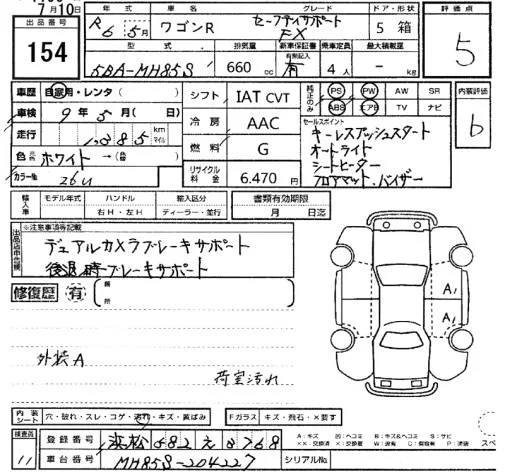 7月10日
出品番号 154
年式 R6年5月
車名 ワゴンR
グレード セーフティサポート FX
ドア・形状 5 箱
評価点 5
型式 5BA-MH85S
排気量 660 cc
新車保証書 有 有無記入
乗車定員 4人
最大積載量 - kg
車歴 自家用・レンタ( )
車検 9年5月( 日)
走行 1,385 km マイル
色 ホワイト→(
カラー№ 26U
シフト IAT CVT
冷房 AAC
燃料 G
リサイクル料金 6,470円
純正のみ PS PW AW SR
ABS エアB TV ナビ
内装評価 b
セールスポイント
キーレスプッシュスタート
オートライト
シートヒーター
フロアマット、バイザー
輸入車 モデル年式 年 ハンドル 右H・左H 輸入区分 ディーラー・並行
書類有効期限 月 日迄
※注意事項等記載
デュアルカメラブレーキサポート
後退時ブレーキサポート
修復歴 有( 箇所
A1
A1
外装A
荷室汚れ
内装シート 穴・破れ・スレ・コゲ・汚れ・キズ・黄ばみ
Fガラス キズ・飛石・×要す
検査員 11
登録番号 浜松 582 え 8768
車台番号 MH85S-204227
シリアル№